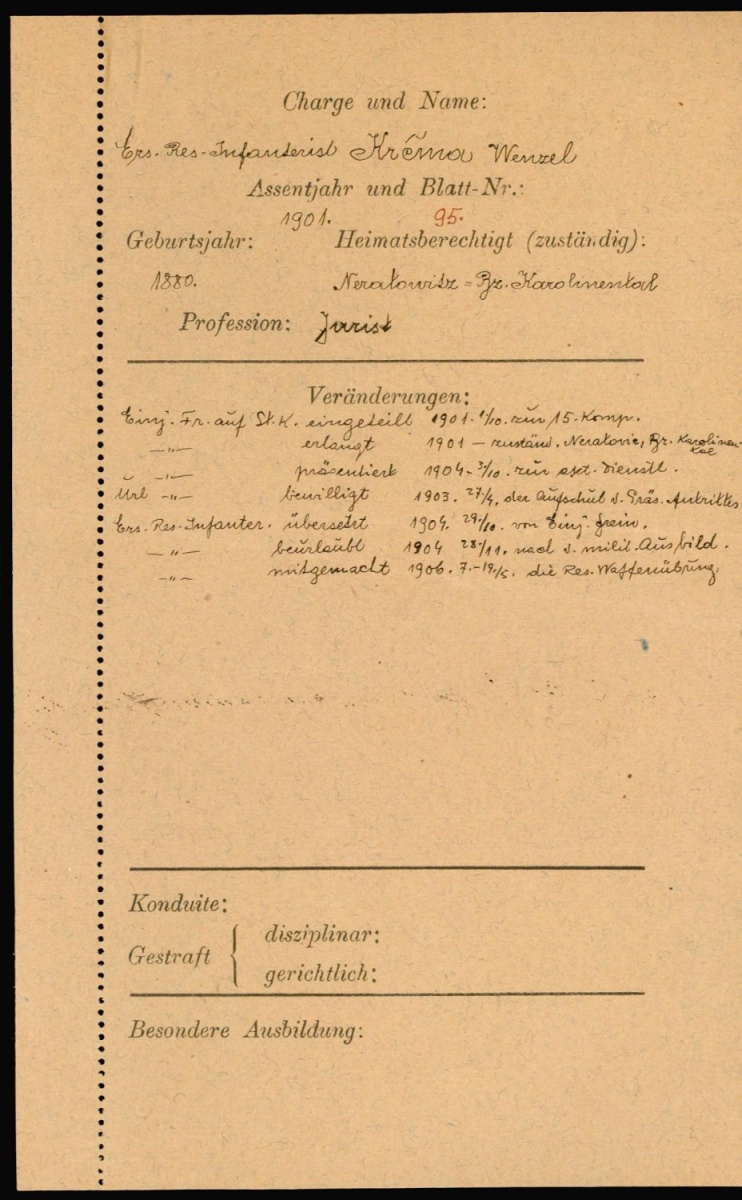 Charge und Name:
Ers. Res. Infanterist Krčma Wenzel
Assentjahr und Blatt-Nr.:
1901. 95.
Geburtsjahr: Heimatsberechtigt (zuständig):
1880. Neratowitz = Bz. Karolinental
Profession: Jurist
Veränderungen:
Einj. Fr. auf St. K. eingeteilt 1901. 1/10. zur 15. Komp.
—"— erlangt 1901 — zuständ. Neratovic, Bz. Karolinen-
tal
—"— präsentiert 1904. 3/10. zur Dienstl.
Url —"— bewilligt 1903. 27/4. der Aufschub d. Präs. Antrittes
Ers. Res. Infanter. übersetzt 1904. 29/10. von Einj. freiw.
—"— beurlaubt 1904 28/11. nach d. milit. Ausbild.
—"— mitgemacht 1906. 7.-19./5. die Res. Waffenübung.
Konduite:
Gestraft { disziplinar:
gerichtlich:
Besondere Ausbildung: